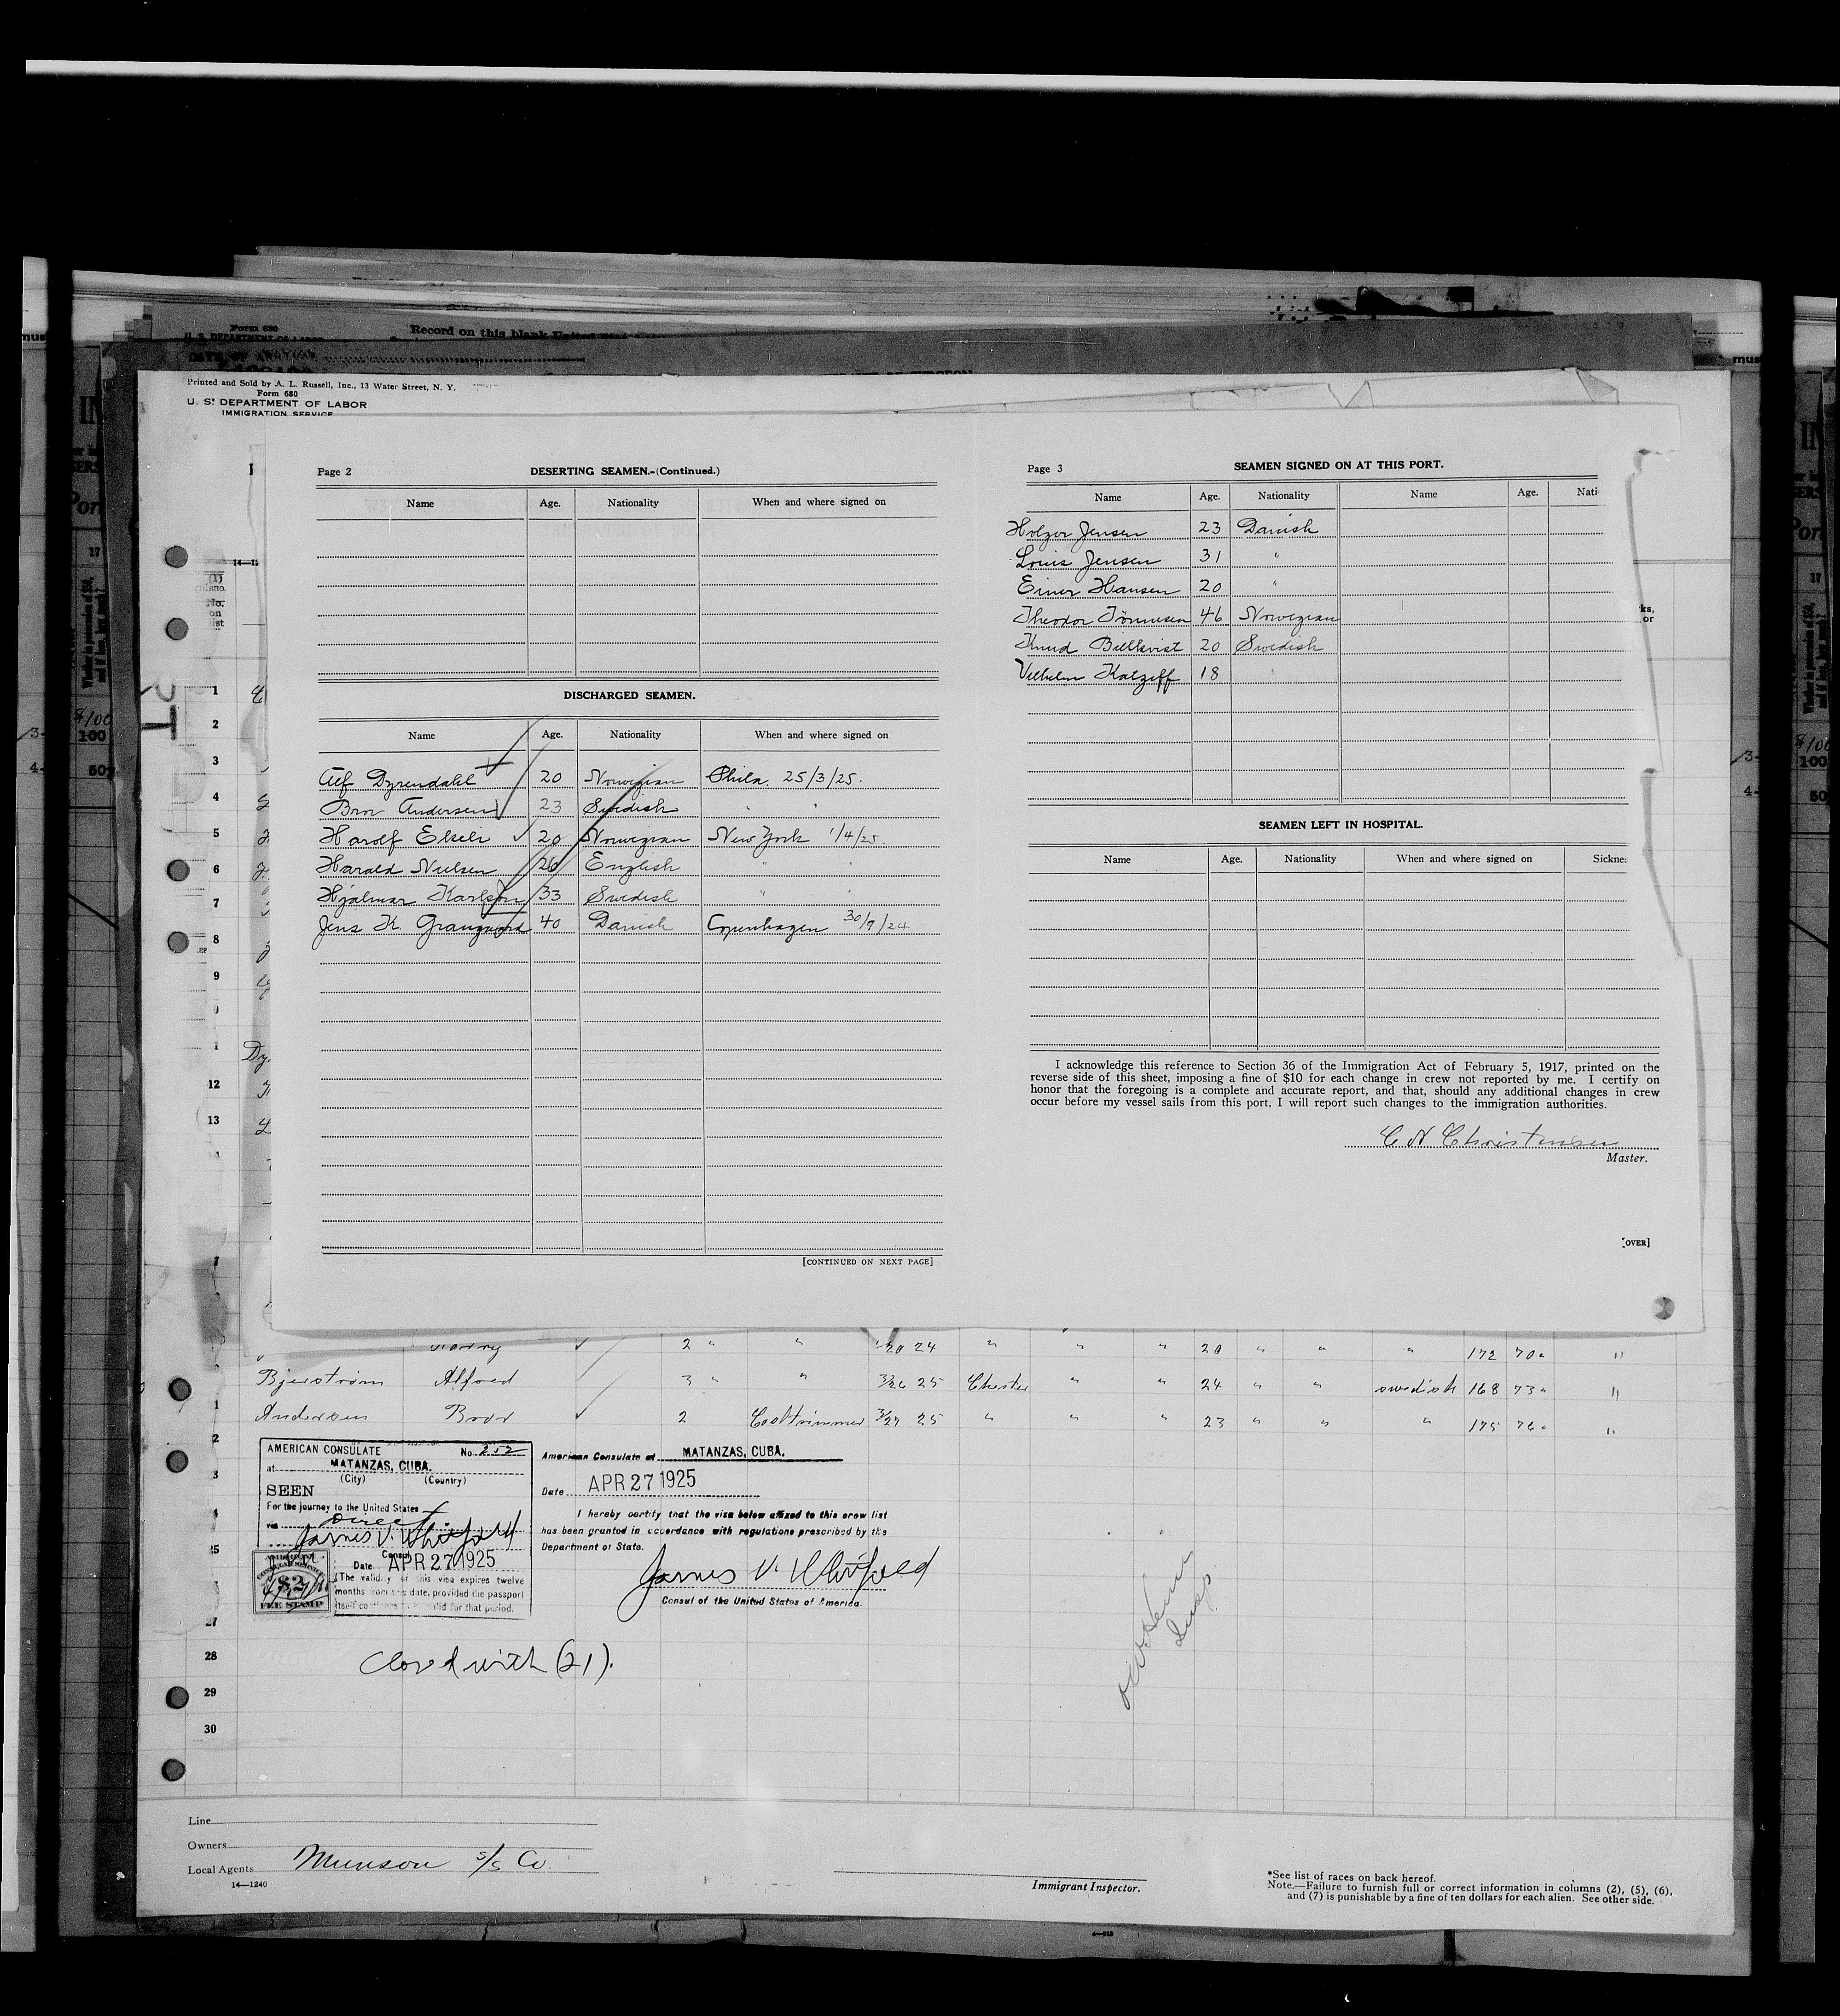 Form 680
Record on this blank United
Printed and Sold by A. L. Russell, Inc., 13 Water Street, N. Y.
Form 680
U. S. DEPARTMENT OF LABOR
IMMIGRATION SERVICE
Page 2 DESERTING SEAMEN.-(Continued.)
Name Age. Nationality When and where signed on
DISCHARGED SEAMEN.
Name Age. Nationality When and where signed on
Alf Dyrendahl 20 Norwegian Phila. 25/3/25.
Bror Andersen 23 Swedish " "
Harolf Elseli 20 Norwegian New York 1/4/25.
Harald Nielsen 26 English " "
Hjalmar Karlson 33 Swedish " "
Jens K. 40 Danish Copenhagen 30/9/24
[CONTINUED ON NEXT PAGE]
Page 3 SEAMEN SIGNED ON AT THIS PORT.
Name Age. Nationality Name Age. Nati
Holger Jensen 23 Danish
Louis Jensen 31 "
Einer Hansen 20 "
Theodor Tönnesen 46 Norwegian
Knud Billkvist 20 Swedish
Vilhelm Kalzeff 18 "
SEAMEN LEFT IN HOSPITAL.
Name Age. Nationality When and where signed on Sickne
I acknowledge this reference to Section 36 of the Immigration Act of February 5, 1917, printed on the
reverse side of this sheet, imposing a fine of $10 for each change in crew not reported by me. I certify on
honor that the foregoing is a complete and accurate report, and that, should any additional changes in crew
occur before my vessel sails from this port, I will report such changes to the immigration authorities.
C N Christensen
Master.
[OVER]
1
2
3
4
5
6
7
8
9
12
13
Harry 2 " " 20 24 " " " 20 " " " 172 70 "
Bjerström Alfred 3 " " 3/26 25 Chester " " 24 " " swedish 168 73 "
Andersen Bror 2 Coaltrimmer 3/27 25 " " " 23 " " " 175 76 "
AMERICAN CONSULATE No. 252
at MATANZAS, CUBA.
(City) (Country)
SEEN
For the journey to the United States
via direct
James V. Whitfield
Consul
Date APR 27 1925
(The validity of this visa expires twelve
months from this date, provided the passport
itself continues to be valid for that period.
$2
FEE STAMP
American Consulate at MATANZAS, CUBA.
Date APR 27 1925
I hereby certify that the visa below affixed to this crew list
has been granted in accordance with regulations prescribed by the
Department of State.
James V. Whitfield
Consul of the United States of America.
Closed with (21).
Insp
27
28
29
30
Line
Owners
Local Agents Munson S/S Co.
14—1240
Immigrant Inspector.
*See list of races on back hereof.
Note.—Failure to furnish full or correct information in columns (2), (5), (6),
and (7) is punishable by a fine of ten dollars for each alien. See other side.